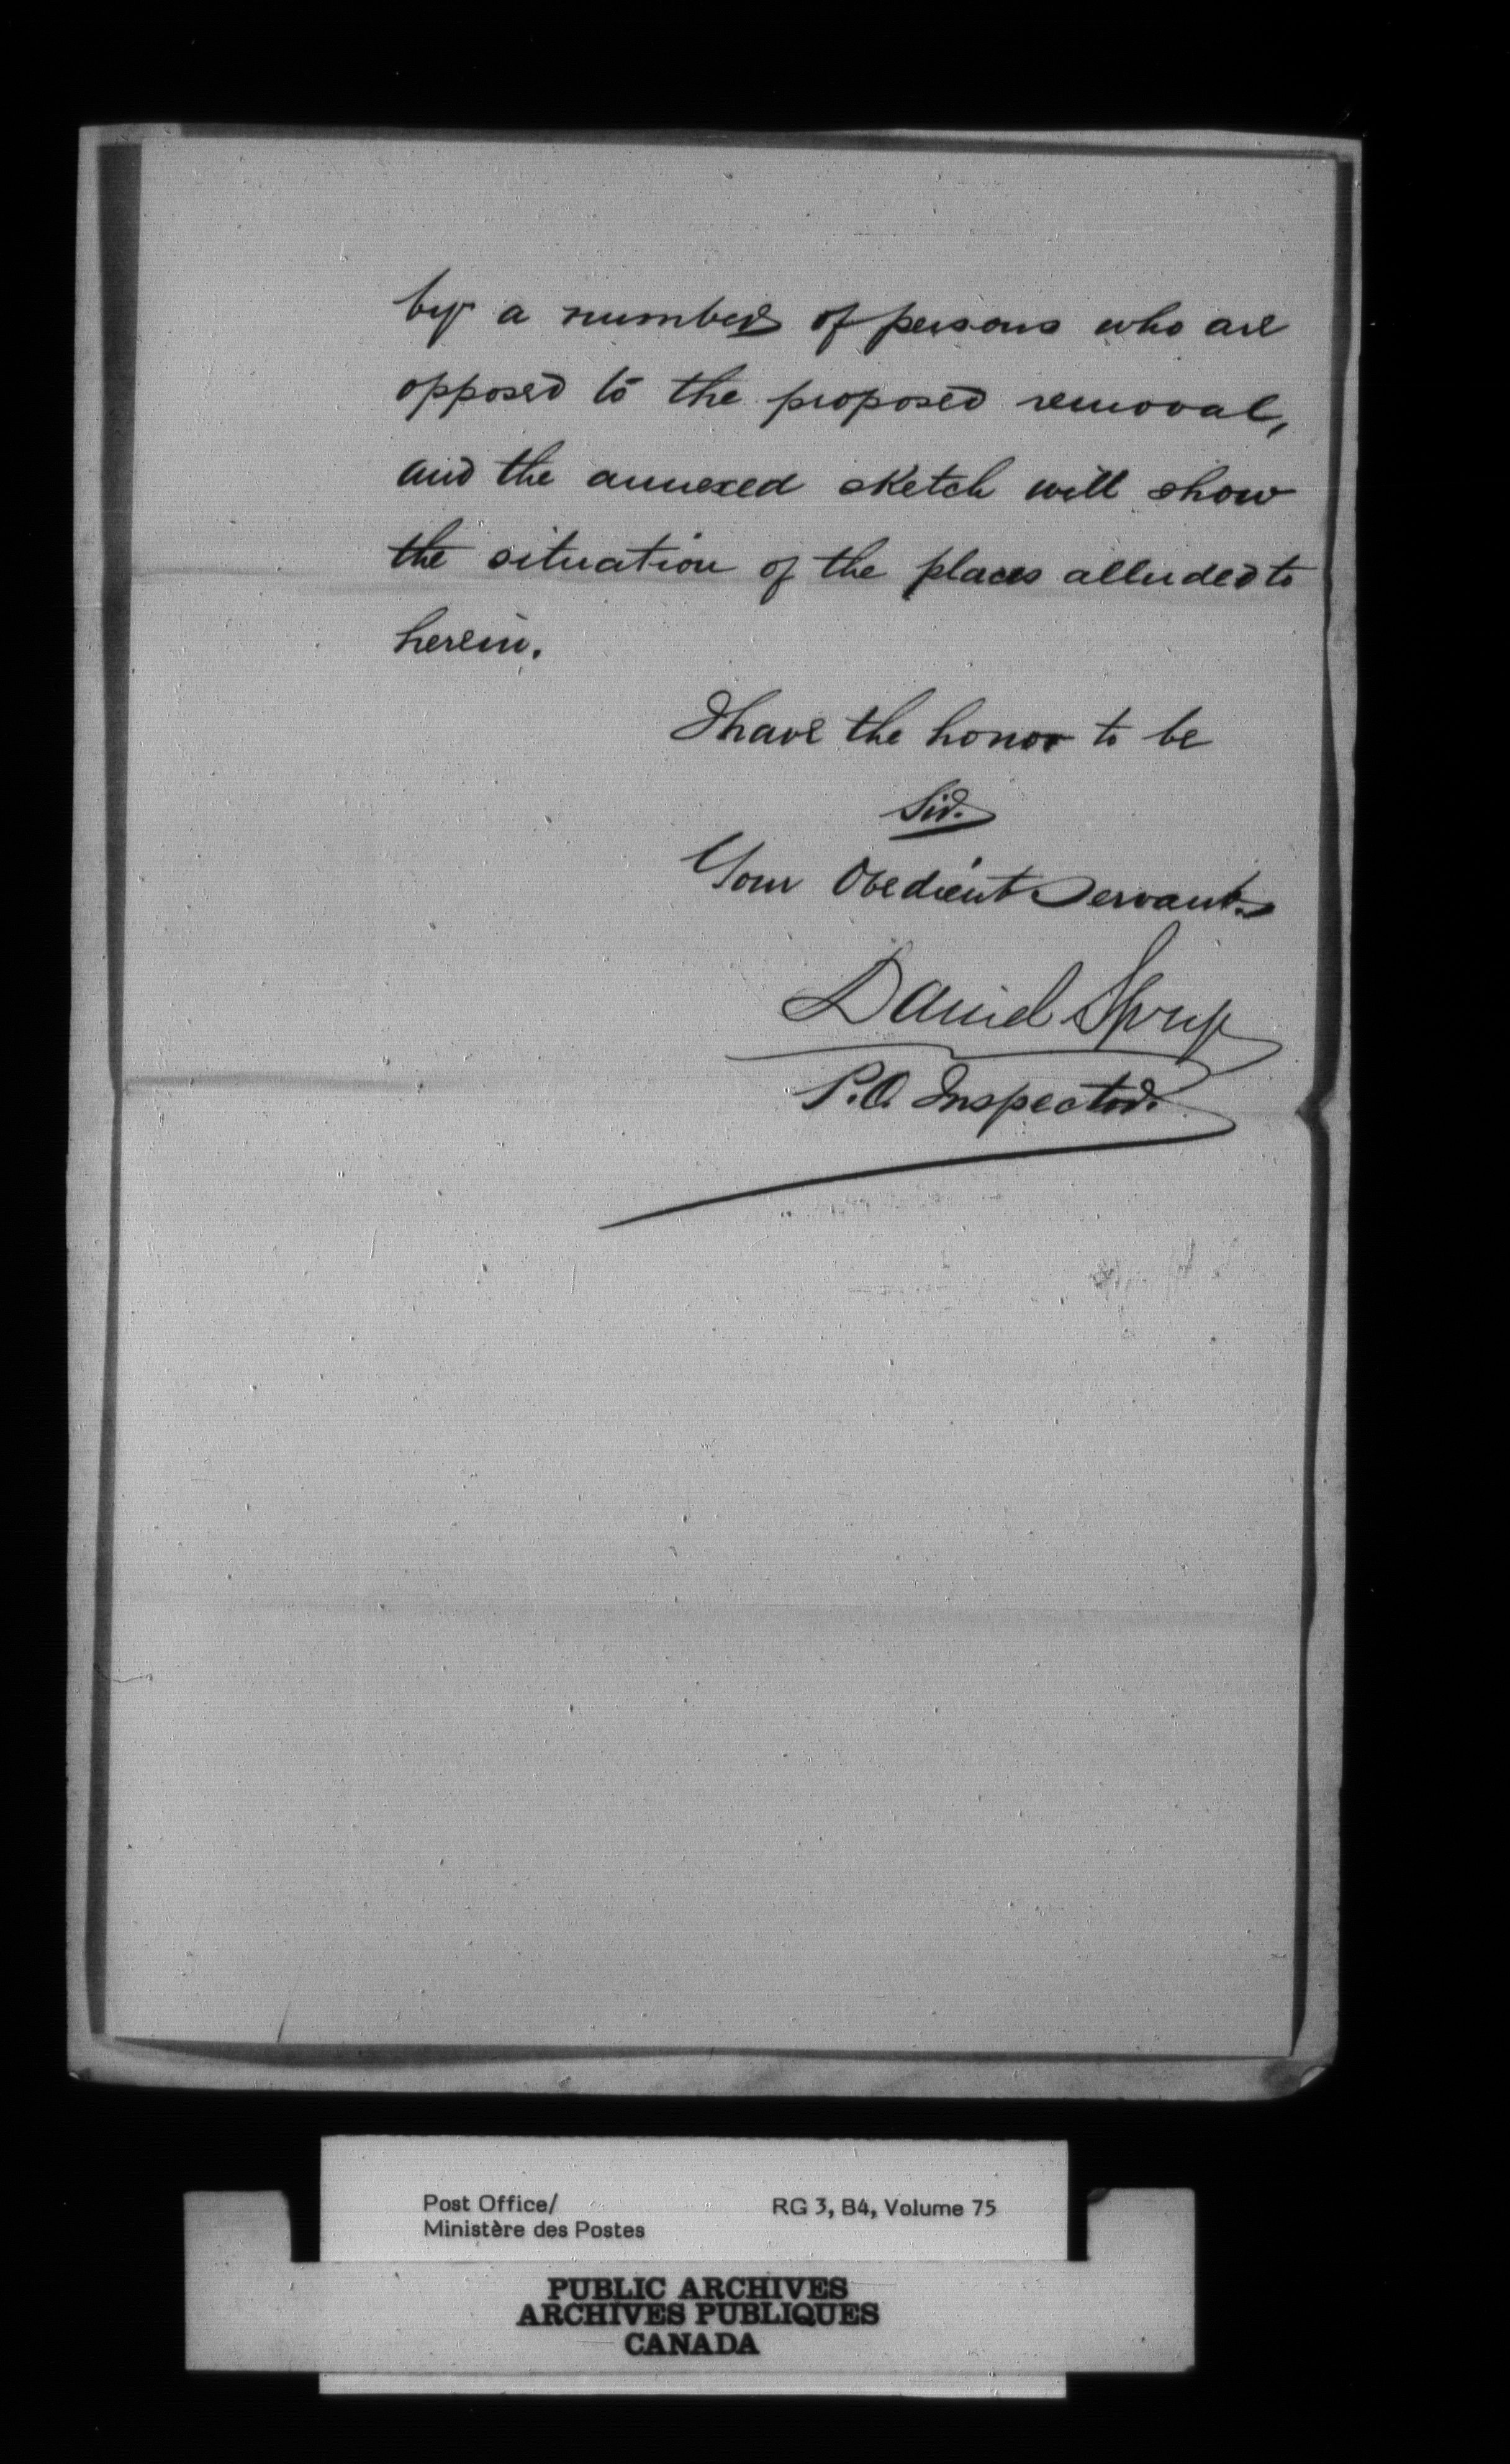 by a number of persons who are
opposed to the proposed removal,
and the annexed sketch will show
the situation of the places alluded to
herein.
I have the honor to be
Sir.
Your Obedient Servant.
Daniel Spry
P.O. Inspector.
Post Office/ RG 3, B4, Volume 75
Ministère des Postes
PUBLIC ARCHIVES
ARCHIVES PUBLIQUES
CANADA